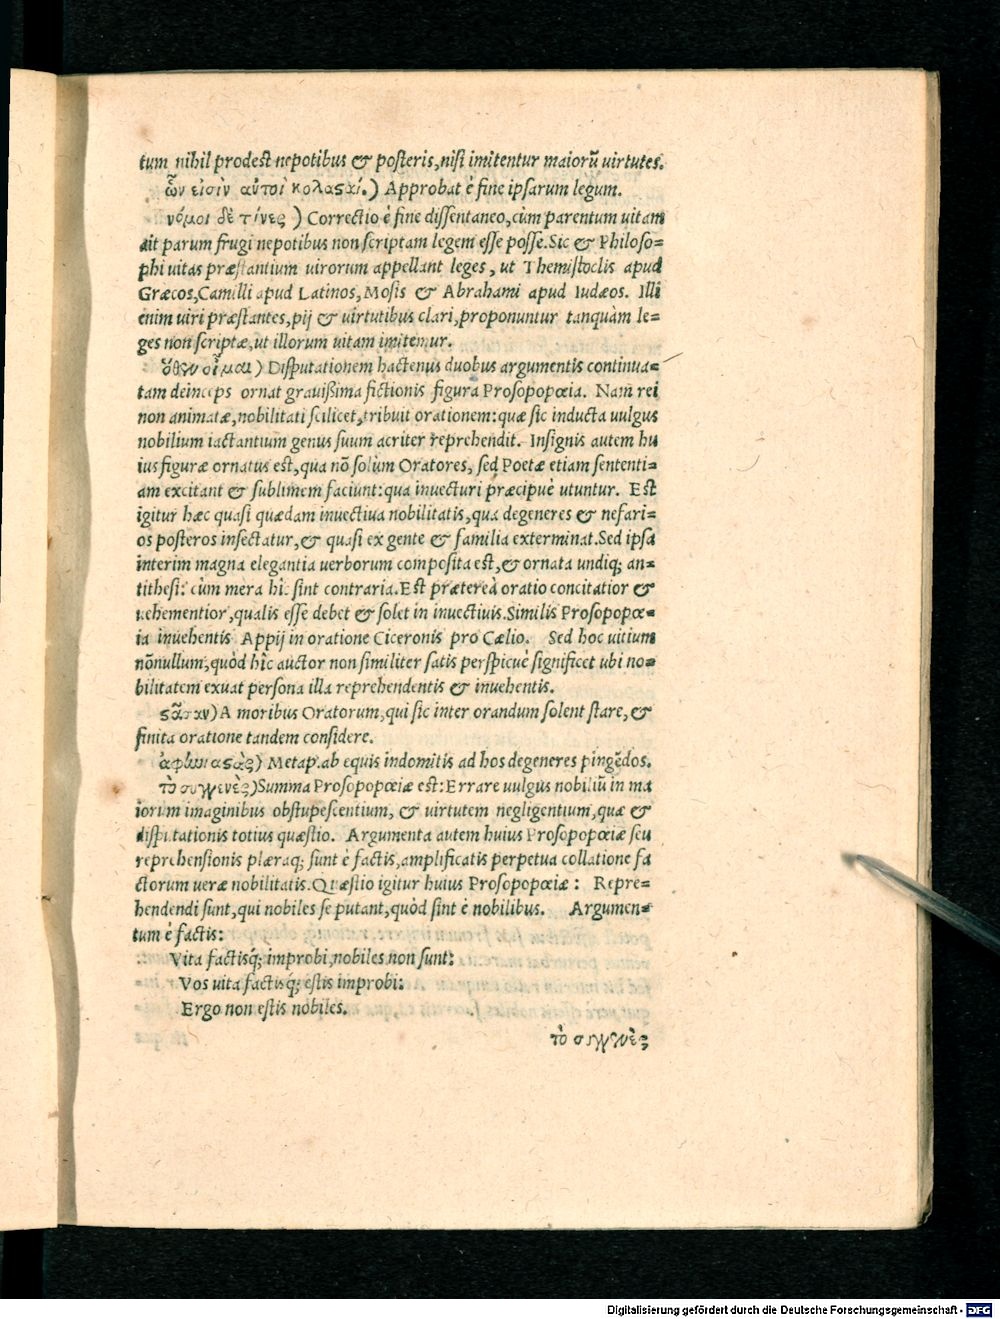 tum nihil prodest nepotibus & posteris, nisi imitentur maiorũ uirtutes.
ὧν εἰσὶν αὐτοὶ κολασαί.) Approbat è fine ipsarum legum.
νόμοι δὲ τίνες) Correctio è fine dissentaneo, cùm parentum uitam
ait parum frugi nepotibus non scriptam legem esse posse. Sic & Philoso=
phi uitas præstantium uirorum appellant leges, ut Themistoclis apud
Græcos, Camilli apud Latinos, Mosis & Abrahami apud Iudæos. Illi
enim uiri præstantes, pij & uirtutibus clari, proponuntur tanquàm le=
ges non scriptæ, ut illorum uitam imitemur.
ὅθεν οἶμαι) Disputationem hactenus duobus argumentis continua=
tam deinceps ornat grauißima fictionis figura Prosopopœia. Nam rei
non animatæ, nobilitati scilicet, tribuit orationem: quæ sic inducta uulgus
nobilium iactantium genus suum acriter reprehendit. Insignis autem hu
ius figuræ ornatus est, qua nõ solùm Oratores, sed Poetæ etiam sententi=
am excitant & sublimem faciunt: qua inuecturi præcipuè utuntur. Est
igitur hæc quasi quædam inuectiua nobilitatis, qua degeneres & nefari=
os posteros insectatur, & quasi ex gente & familia exterminat. Sed ipsa
interim magna elegantia uerborum composita est, & ornata undiq; an=
tithesi: cùm mera hîc sint contraria. Est prætereà oratio concitatior &
uehementior, qualis esse debet & solet in inuectiuis. Similis Prosopopœ=
ia inuehentis Appij in oratione Ciceronis pro Cælio. Sed hoc uitium
nõnullum, quòd hîc auctor non similiter satis perspicuè significet ubi no=
bilitatem exuat persona illa reprehendentis & inuehentis.
ϛᾶσαν) A moribus Oratorum, qui sic inter orandum solent stare, &
finita oratione tandem considere.
ἀφωιαϛὰς) Metap. ab equis indomitis ad hos degeneres pingẽdos.
τὸ συγγενὲς) Summa Prosopopœiæ est: Errare uulgus nobiliũ in ma
iorum imaginibus obstupescentium, & uirtutem negligentium, quæ &
disputationis totius quæstio. Argumenta autem huius Prosopopœiæ seu
reprehensionis plæraq; sunt è factis, amplificatis perpetua collatione fa
ctorum ueræ nobilitatis. Quæstio igitur huius Prosopopœiæ: Repre=
hendendi sunt, qui nobiles se putant, quòd sint è nobilibus. Argumen=
tum è factis:
Vita factisq́; improbi, nobiles non sunt:
Vos uita factisq́; estis improbi:
Ergo non estis nobiles.
τὸ συγγενὲς
Digitalisierung gefördert durch die Deutsche Forschungsgemeinschaft - DFG